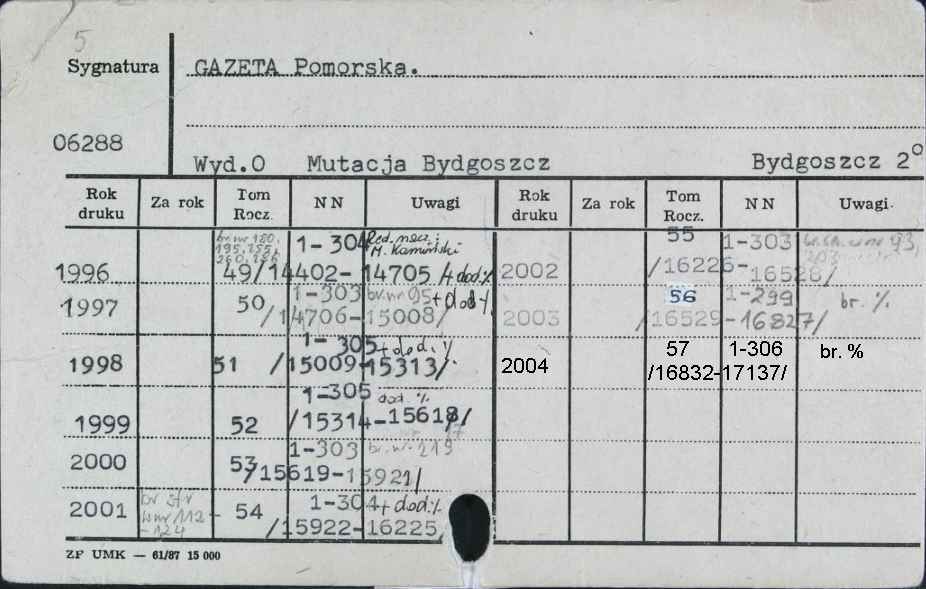 5
Sygnatura GAZETA Pomorska.
06288
Wyd.O Mutacja Bydgoszcz Bydgoszcz 2°
Rok druku Za rok Tom Rocz. NN Uwagi Rok druku Za rok Tom Rocz. NN Uwagi
br. nr 180,
195, 255,
260, 286
1-304 Red. nacz. j
M. Kamiński
1996 49/14402-14705/+dod. %
1997 50 1-303 br. nr 95 + dod %
/14706-15008/
1998 51 1-305 + dod. %
/15009-15313/
1999 52 1-305 dod. %
/15314-15618/
2000 53 1-303 br. nr 219
/15619-15921/
2001 br str
w nr 112-
-124
54 1-304 + dod. %
/15922-16225
2002 55 1-303 93,
/16226-16528/
2003 56 1-299 br. %
/16529-16827/
2004 57 1-306 br. %
/16832-17137/
ZP UMK — 61/87 15 000